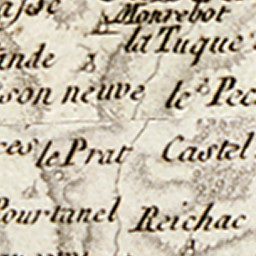 Monrebot
la Tuque
son neuve le's Pec
ces le Prat Castel
Pourtanel Reichac